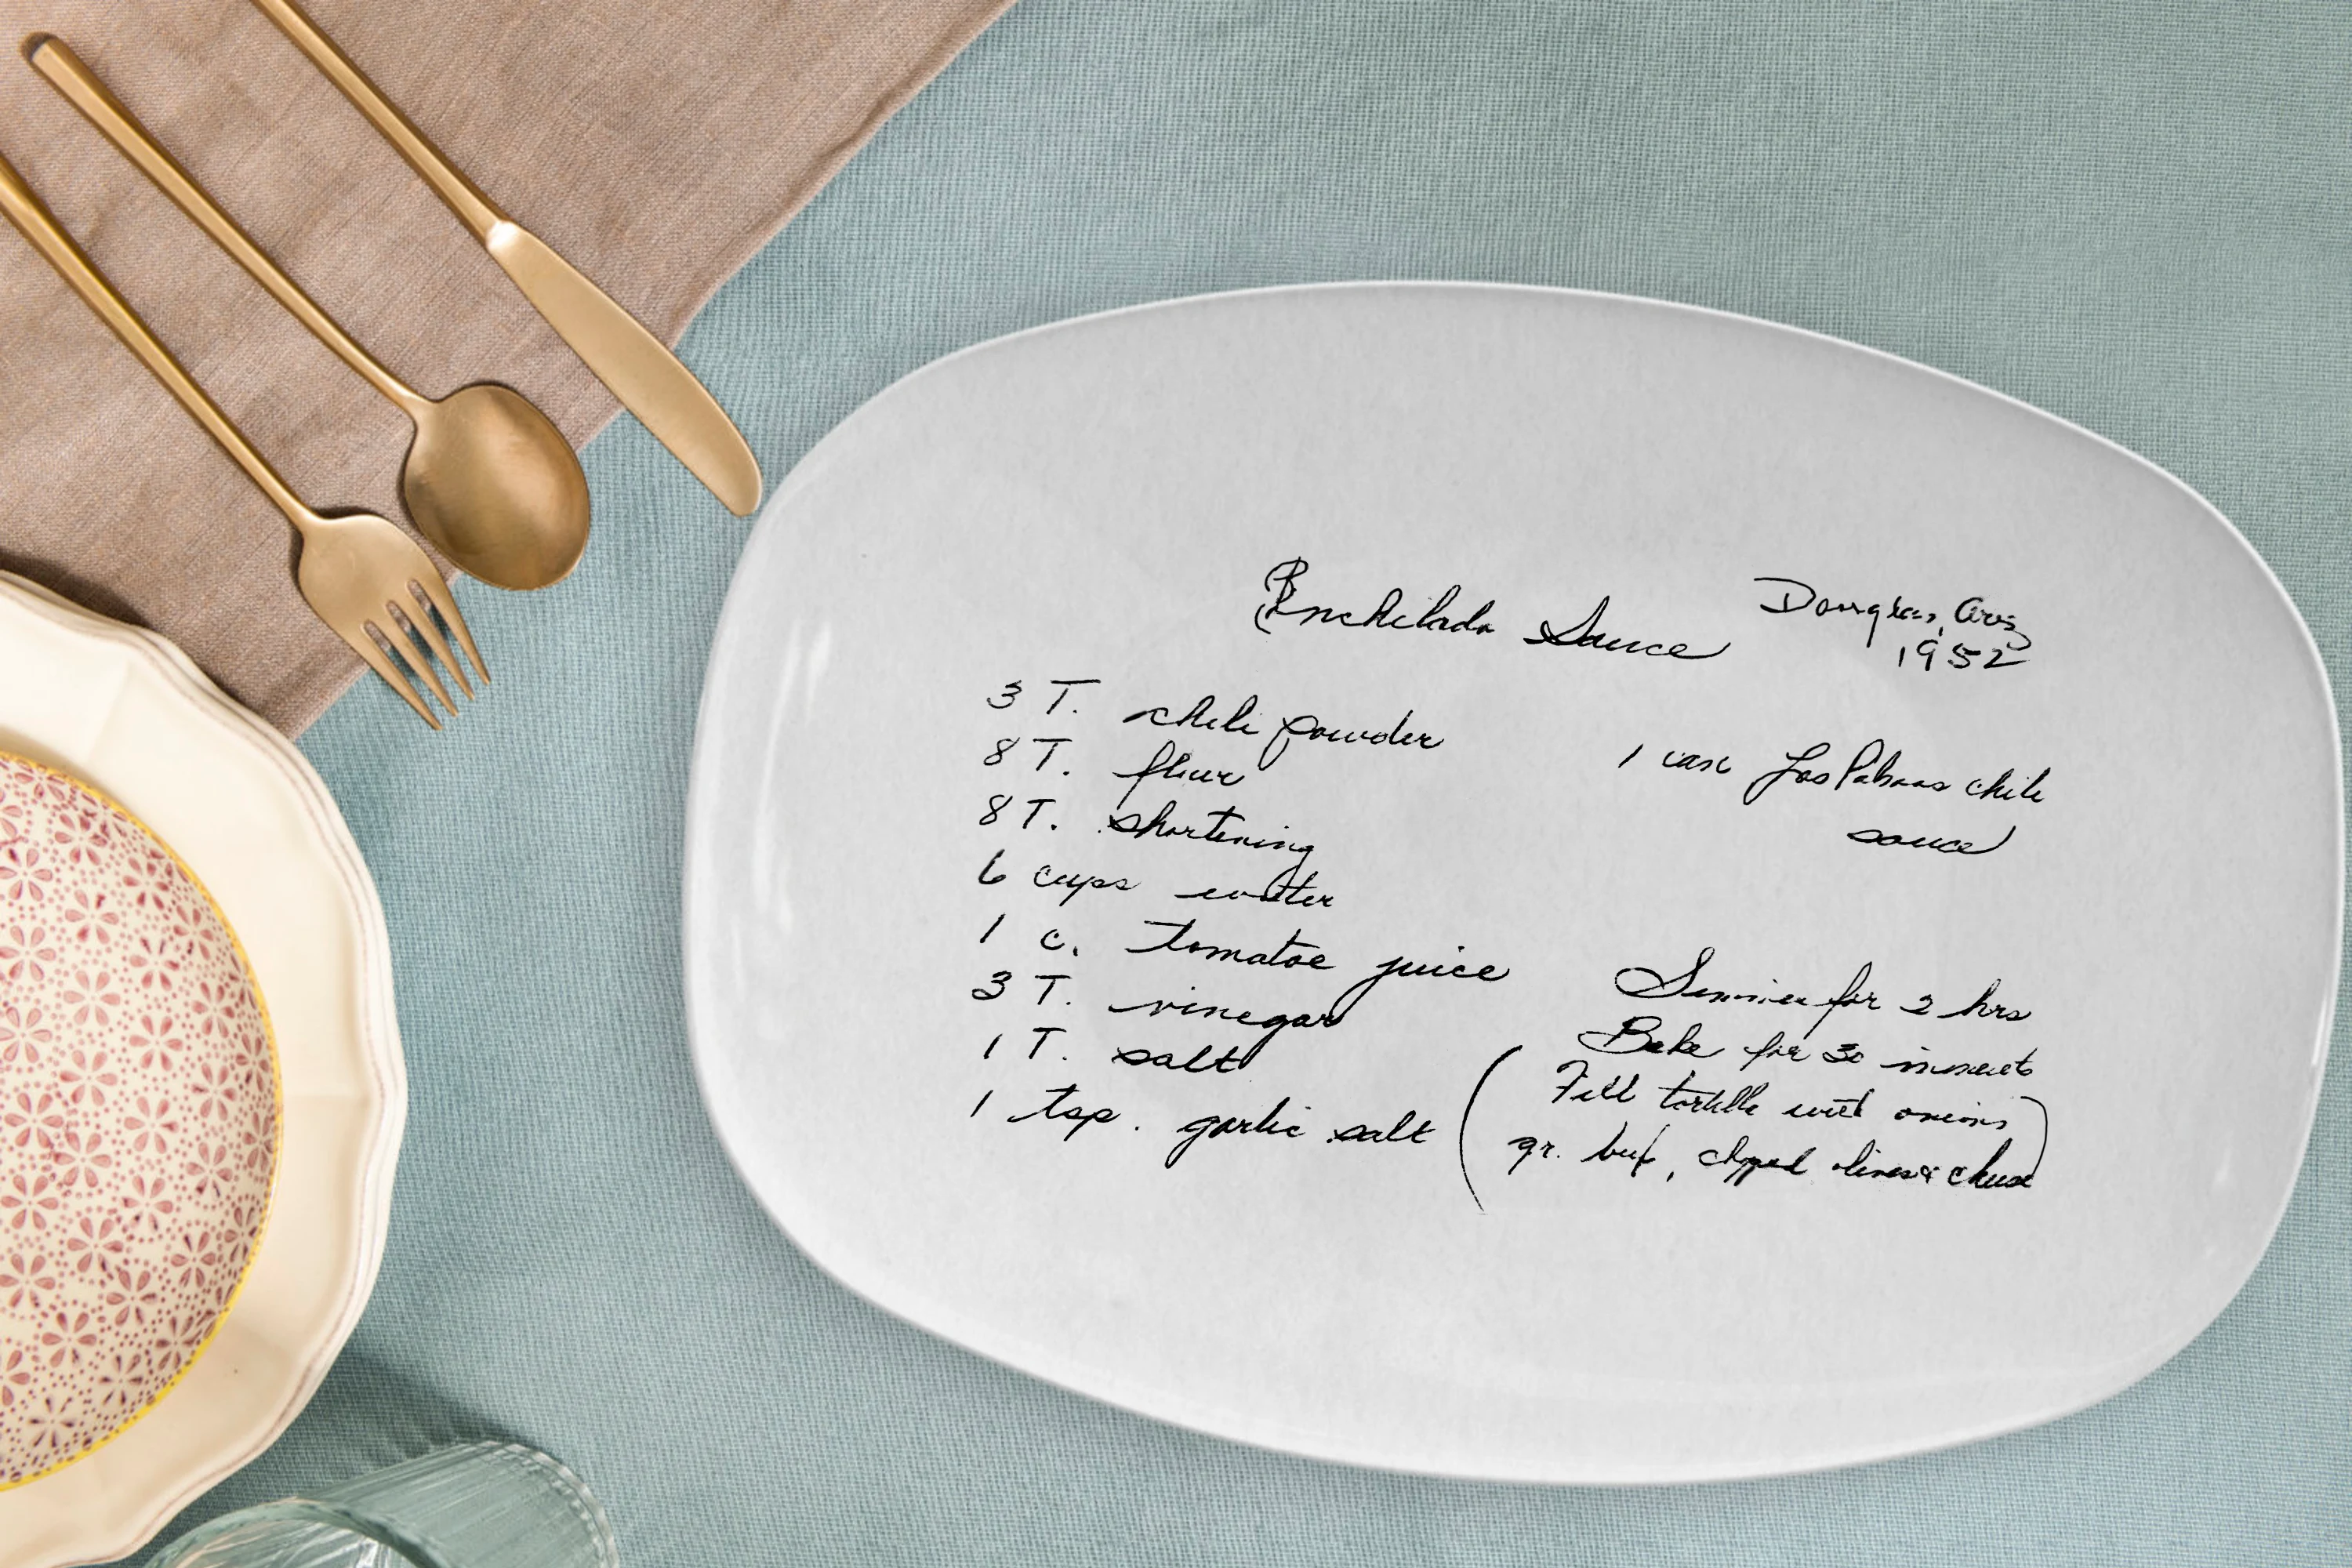 Enchilada Sauce
Douglas, Ariz
1952
3 T. chili powder
8 T. flour
8 T. shortening
6 cups water
1 c. tomatoe juice
3 T. vinegar
1 T. salt
1 tsp. garlic salt
1 can Las Palmas chile
sauce
Simmer for 2 hrs
Bake for 30 minuets
(Fill tortilla with onions
gr. beef, chopped olives & cheese)